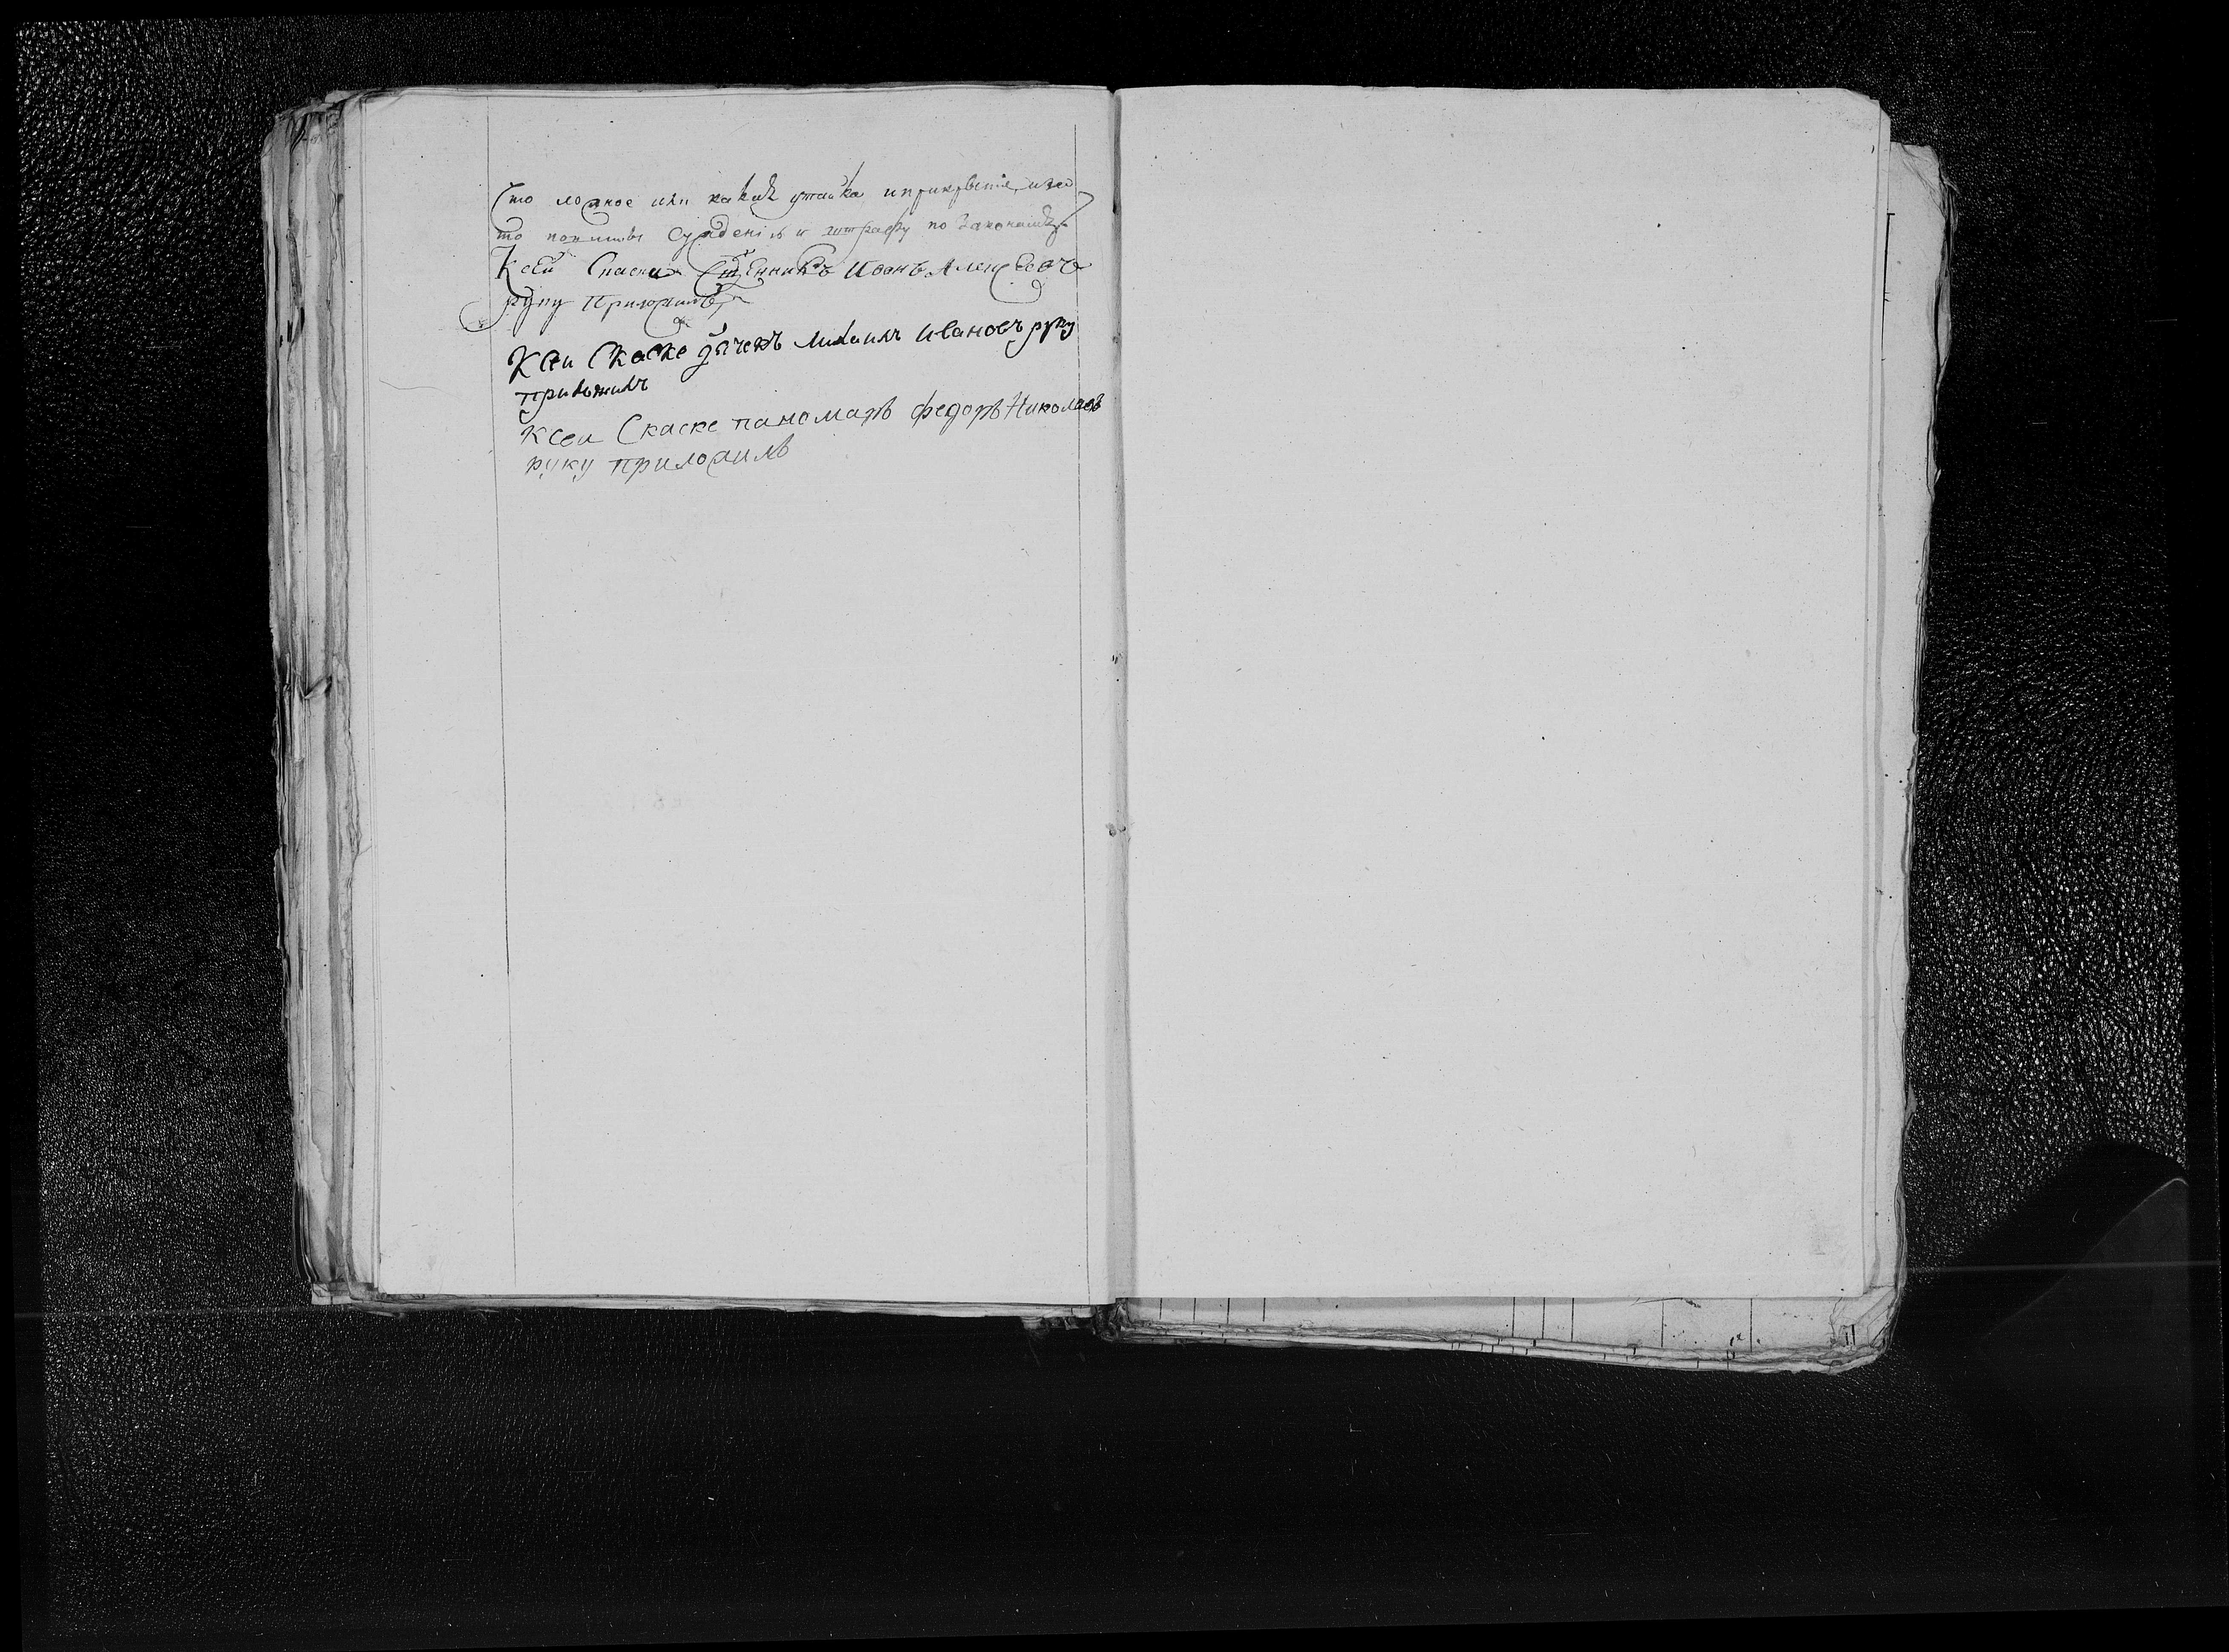 что ложное или какая утайка и прикрытие, и за
то повинны суждению и штрафу по законамъ
Ксей Скаски Священникъ Иванъ Алексеевъ
руку приложилъ
Ксеи Скаске дьячекъ михаилъ ивановъ руку
приложилъ
ксеи Скаске панамарь федоръ Николаевъ
руку приложилъ